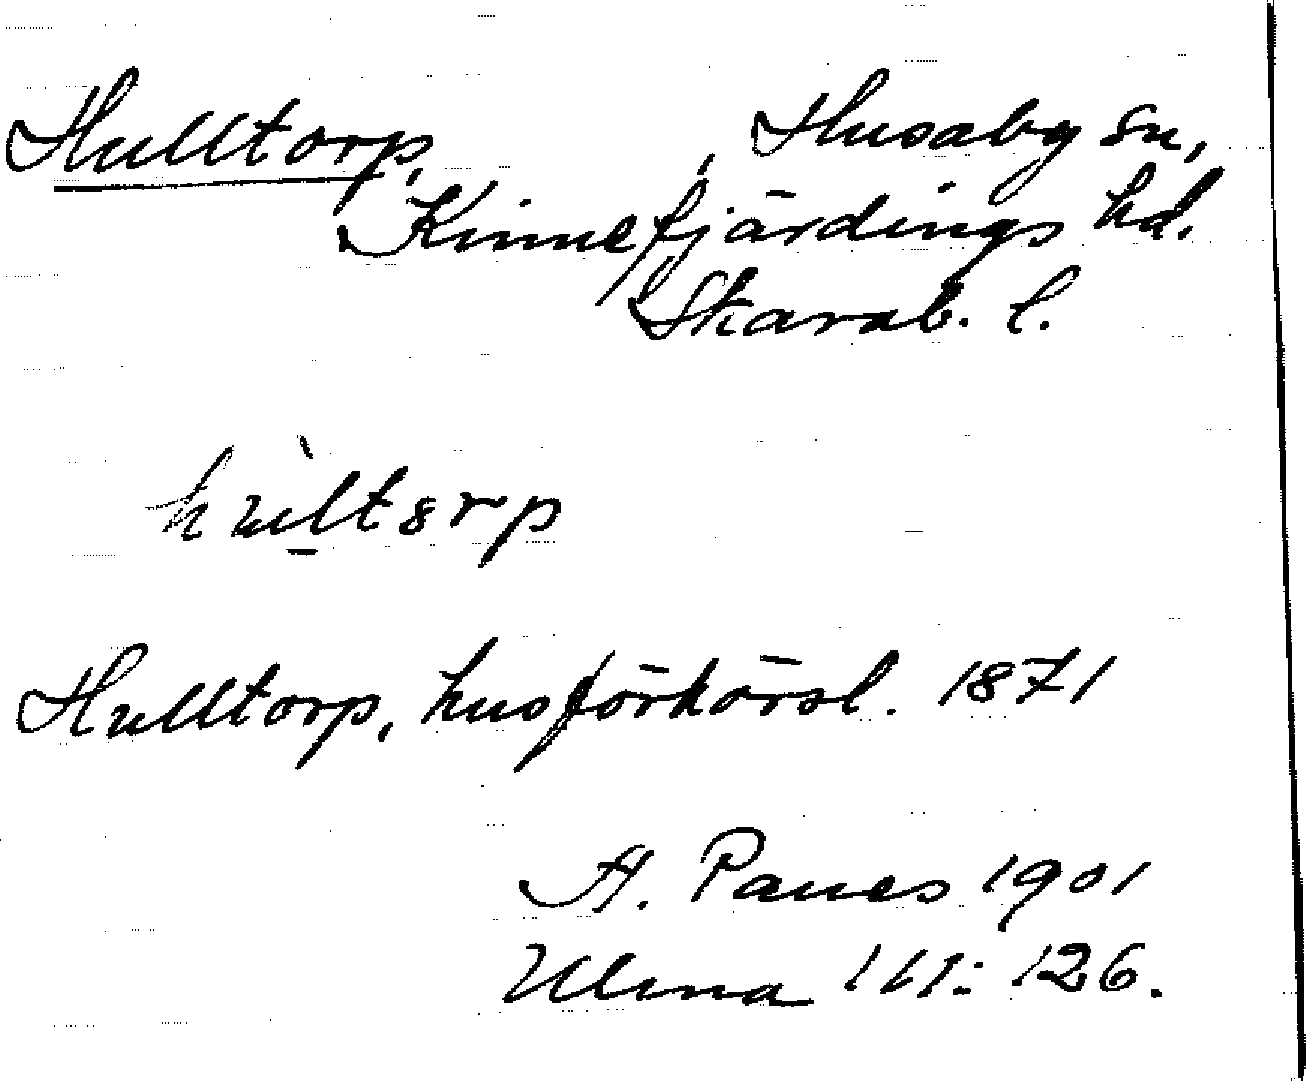 Hulltorp, Husaby sn,
Kinnefjärdings hd.
Skarab. l.
Hulltorp, husförhörsl. 1871
A. Paues 1901
Ulma 111: 126.